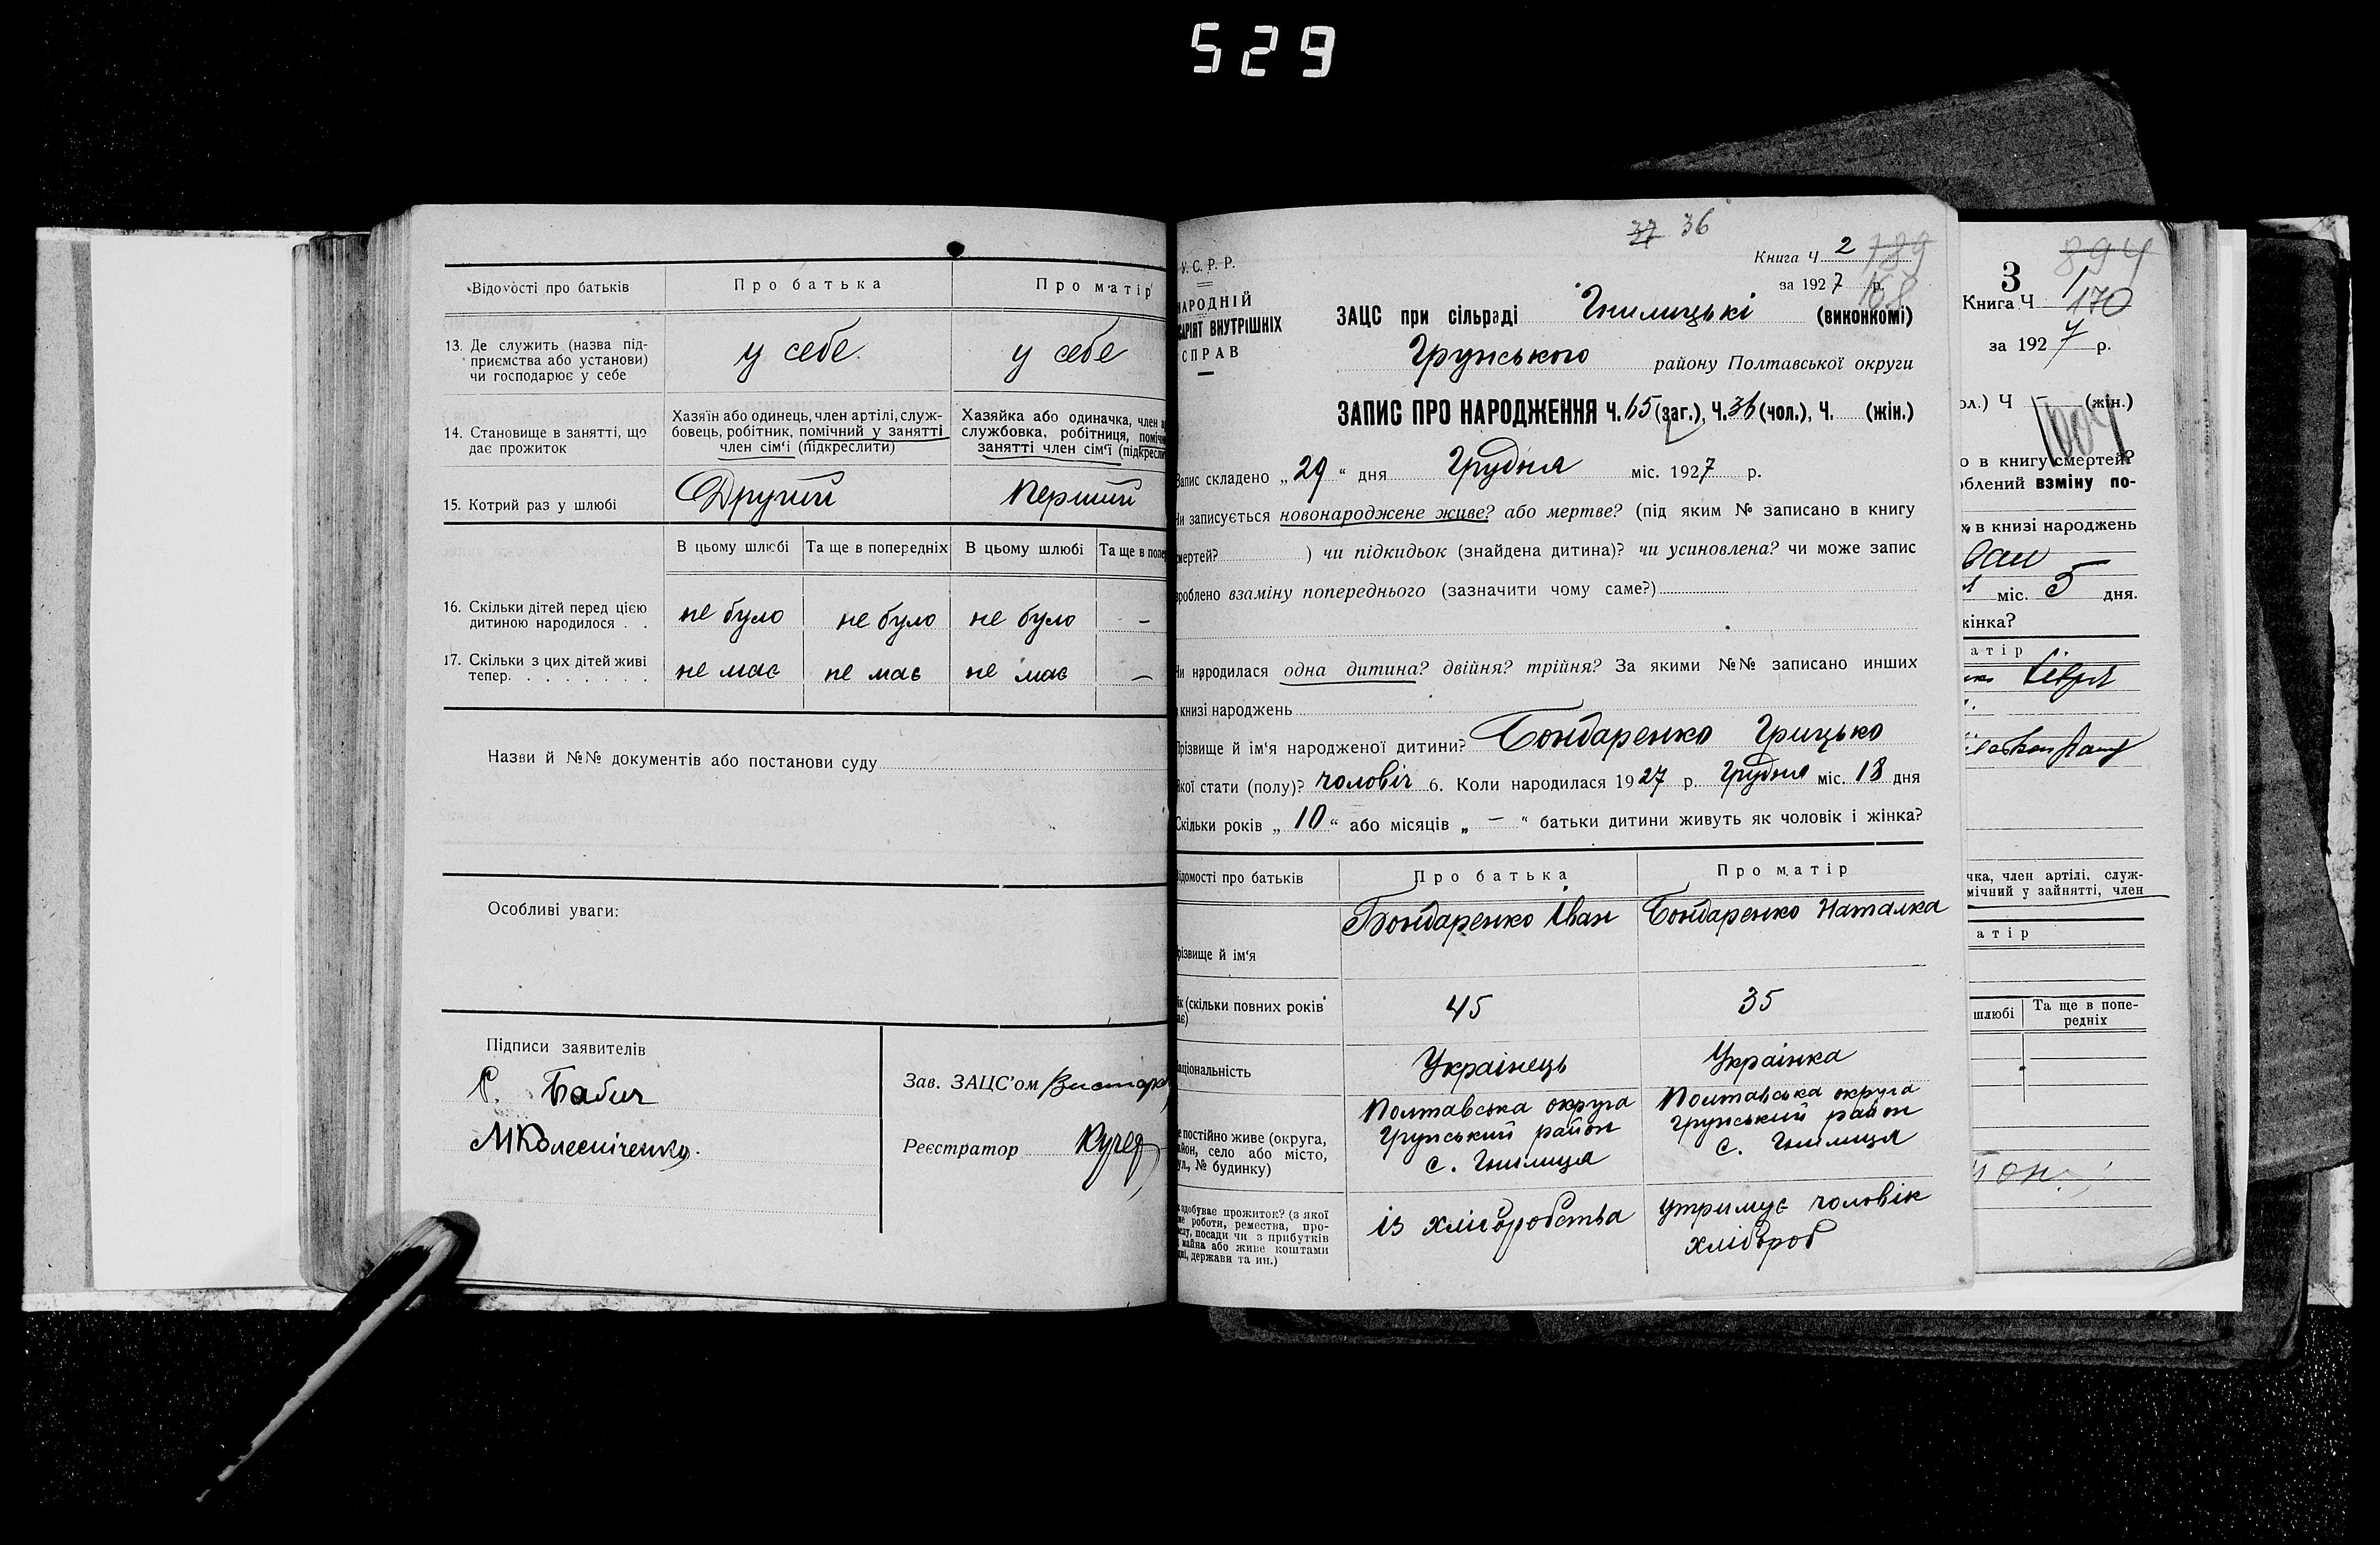 529
Відомості про батьків
Про батька
Про матір
13. Де служить (назва під-
приємства або установи)
чи господарює у себе
у себе.
у себе
14. Становище в занятті, що
дає прожиток
Хазяїн або одинець, член артілі, служ-
бовець, робітник, помічний у занятті
член сім'ї (підкреслити)
Хазяйка або одиначка, член
службовка, робітниця,
занятті член сім'ї
15. Котрий раз у шлюбі
Другий
перший
В цьому шлюбі
Та ще в попередніх
В цьому шлюбі
Та ще в
16. Скільки дітей перед цією
дитиною народилося . .
не було
не було
не було
–
17. Скільки з цих дітей живі
тепер. . . . . . . .
не має
не має
не має
–
Назви й №№ документів або постанови суду
Особливі уваги:
Підписи заявителів
Бабич
МКолесніченко.
Зав. ЗАЦС'ом
Реєстратор
37 36
У.С.Р.Р.
НАРОДНІЙ
ВНУТРІШНІХ
СПРАВ
Книга Ч 2 189
за 1927 р.
168
ЗАЦС при сільраді Гнилицькі (виконкомі)
Грунського району Полтавської округи
ЗАПИС ПРО НАРОДЖЕННЯ Ч. 65 (заг.), Ч. 36 (чол.), Ч. (жін.)
Запис складено „29“ дня Грудня міс. 1927 р.
Чи записується новонароджене живе? або мертве? (під яким № записано в книгу
смертей? ) чи підкидьок (знайдена дитина)? чи усиновлена? чи може запис
зроблено взаміну попереднього (зазначити чому саме?)
Чи народилася одна дитина? двійня? трійня? За якими №№ записано инших
книзі народжень
Прізвище й ім'я народженої дитини? Бондаренко Грицько
Якої стати (полу)? чоловіч 6. Коли народилася 1927 р. Грудня міс. 18 дня
Скільки років „10“ або місяців „–“ батьки дитини живуть як чоловік і жінка?
Відомості про батьків
Про батька
Про матір
Прізвище й ім'я
Бондаренко Іван
Бондаренко Наталка
(скільки повних років
45
35
Національність
Українець
Українка
постійно живе (округа,
район, село або місто,
вул., № будинку)
Полтавська округа
Грунський район
с. Гнилиця
Полтавська округа
Грунський район
с. Гнилиця
здобуває прожиток? (з якої
роботи, ремества, про-
посади чи з прибутків
майна або живе коштами
держави та ин.)
із хліборобства
утримує чоловік
хлібороб
894
3
Книга Ч 1
170
за 1927 р.
Ч – (жін.)
1004
в книгу смертей?
взміну по-
в книзі народжень
міс. 5 дня.
жінка?
чка, член артілі, служ-
мічний у зайнятті, член
шлюбі
Та ще в попе-
редніх